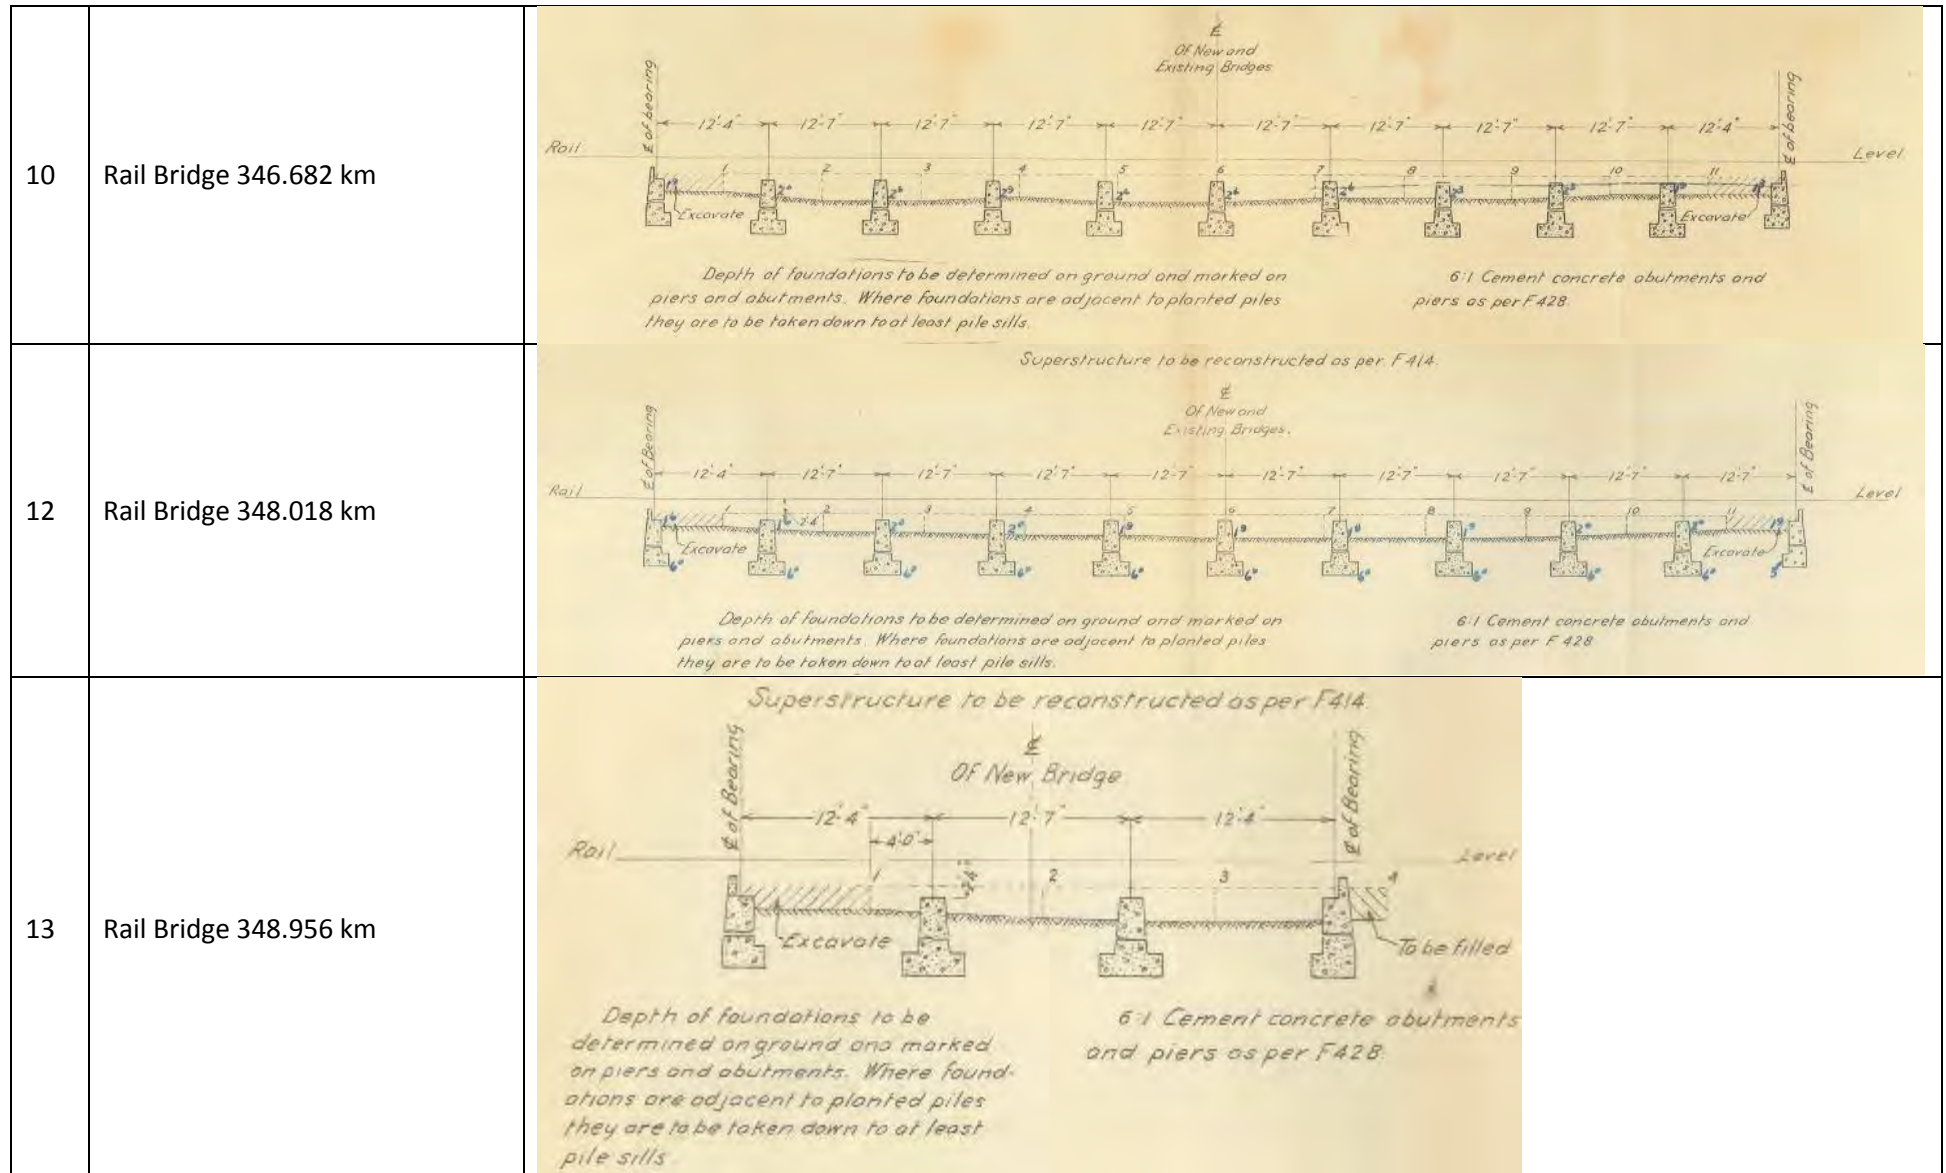 10
Rail Bridge 346.682 km
℄
Of New and
Existing Bridges
℄ of bearing
℄ of bearing
12'-4" 12'-7" 12'-7" 12'-7" 12'-7" 12'-7" 12'-7" 12'-7" 12'-7" 12'-4"
Rail Level
1 2 3 4 5 6 7 8 9 10 11
Excavate Excavate
Depth of foundations to be determined on ground and marked on
piers and abutments. Where foundations are adjacent to planted piles
they are to be taken down to at least pile sills.
6:1 Cement concrete abutments and
piers as per F428.
12
Rail Bridge 348.018 km
Superstructure to be reconstructed as per F414.
℄
Of New and
Existing Bridges.
℄ of Bearing
℄ of Bearing
12'-4" 12'-7" 12'-7" 12'-7" 12'-7" 12'-7" 12'-7" 12'-7" 12'-7" 12'-7"
Rail Level
1 2 3 4 5 6 7 8 9 10 11
Excavate Excavate
Depth of foundations to be determined on ground and marked on
piers and abutments. Where foundations are adjacent to planted piles
they are to be taken down to at least pile sills.
6:1 Cement concrete abutments and
piers as per F428
13
Rail Bridge 348.956 km
Superstructure to be reconstructed as per F414.
℄
Of New Bridge
℄ of Bearing
℄ of Bearing
12'-4" 12'-7" 12'-4"
4'-0"
Rail Level
1 2 3
Excavate
To be filled
Depth of foundations to be
determined on ground and marked
on piers and abutments. Where found-
ations are adjacent to planted piles
they are to be taken down to at least
pile sills
6:1 Cement concrete abutments
and piers as per F428.